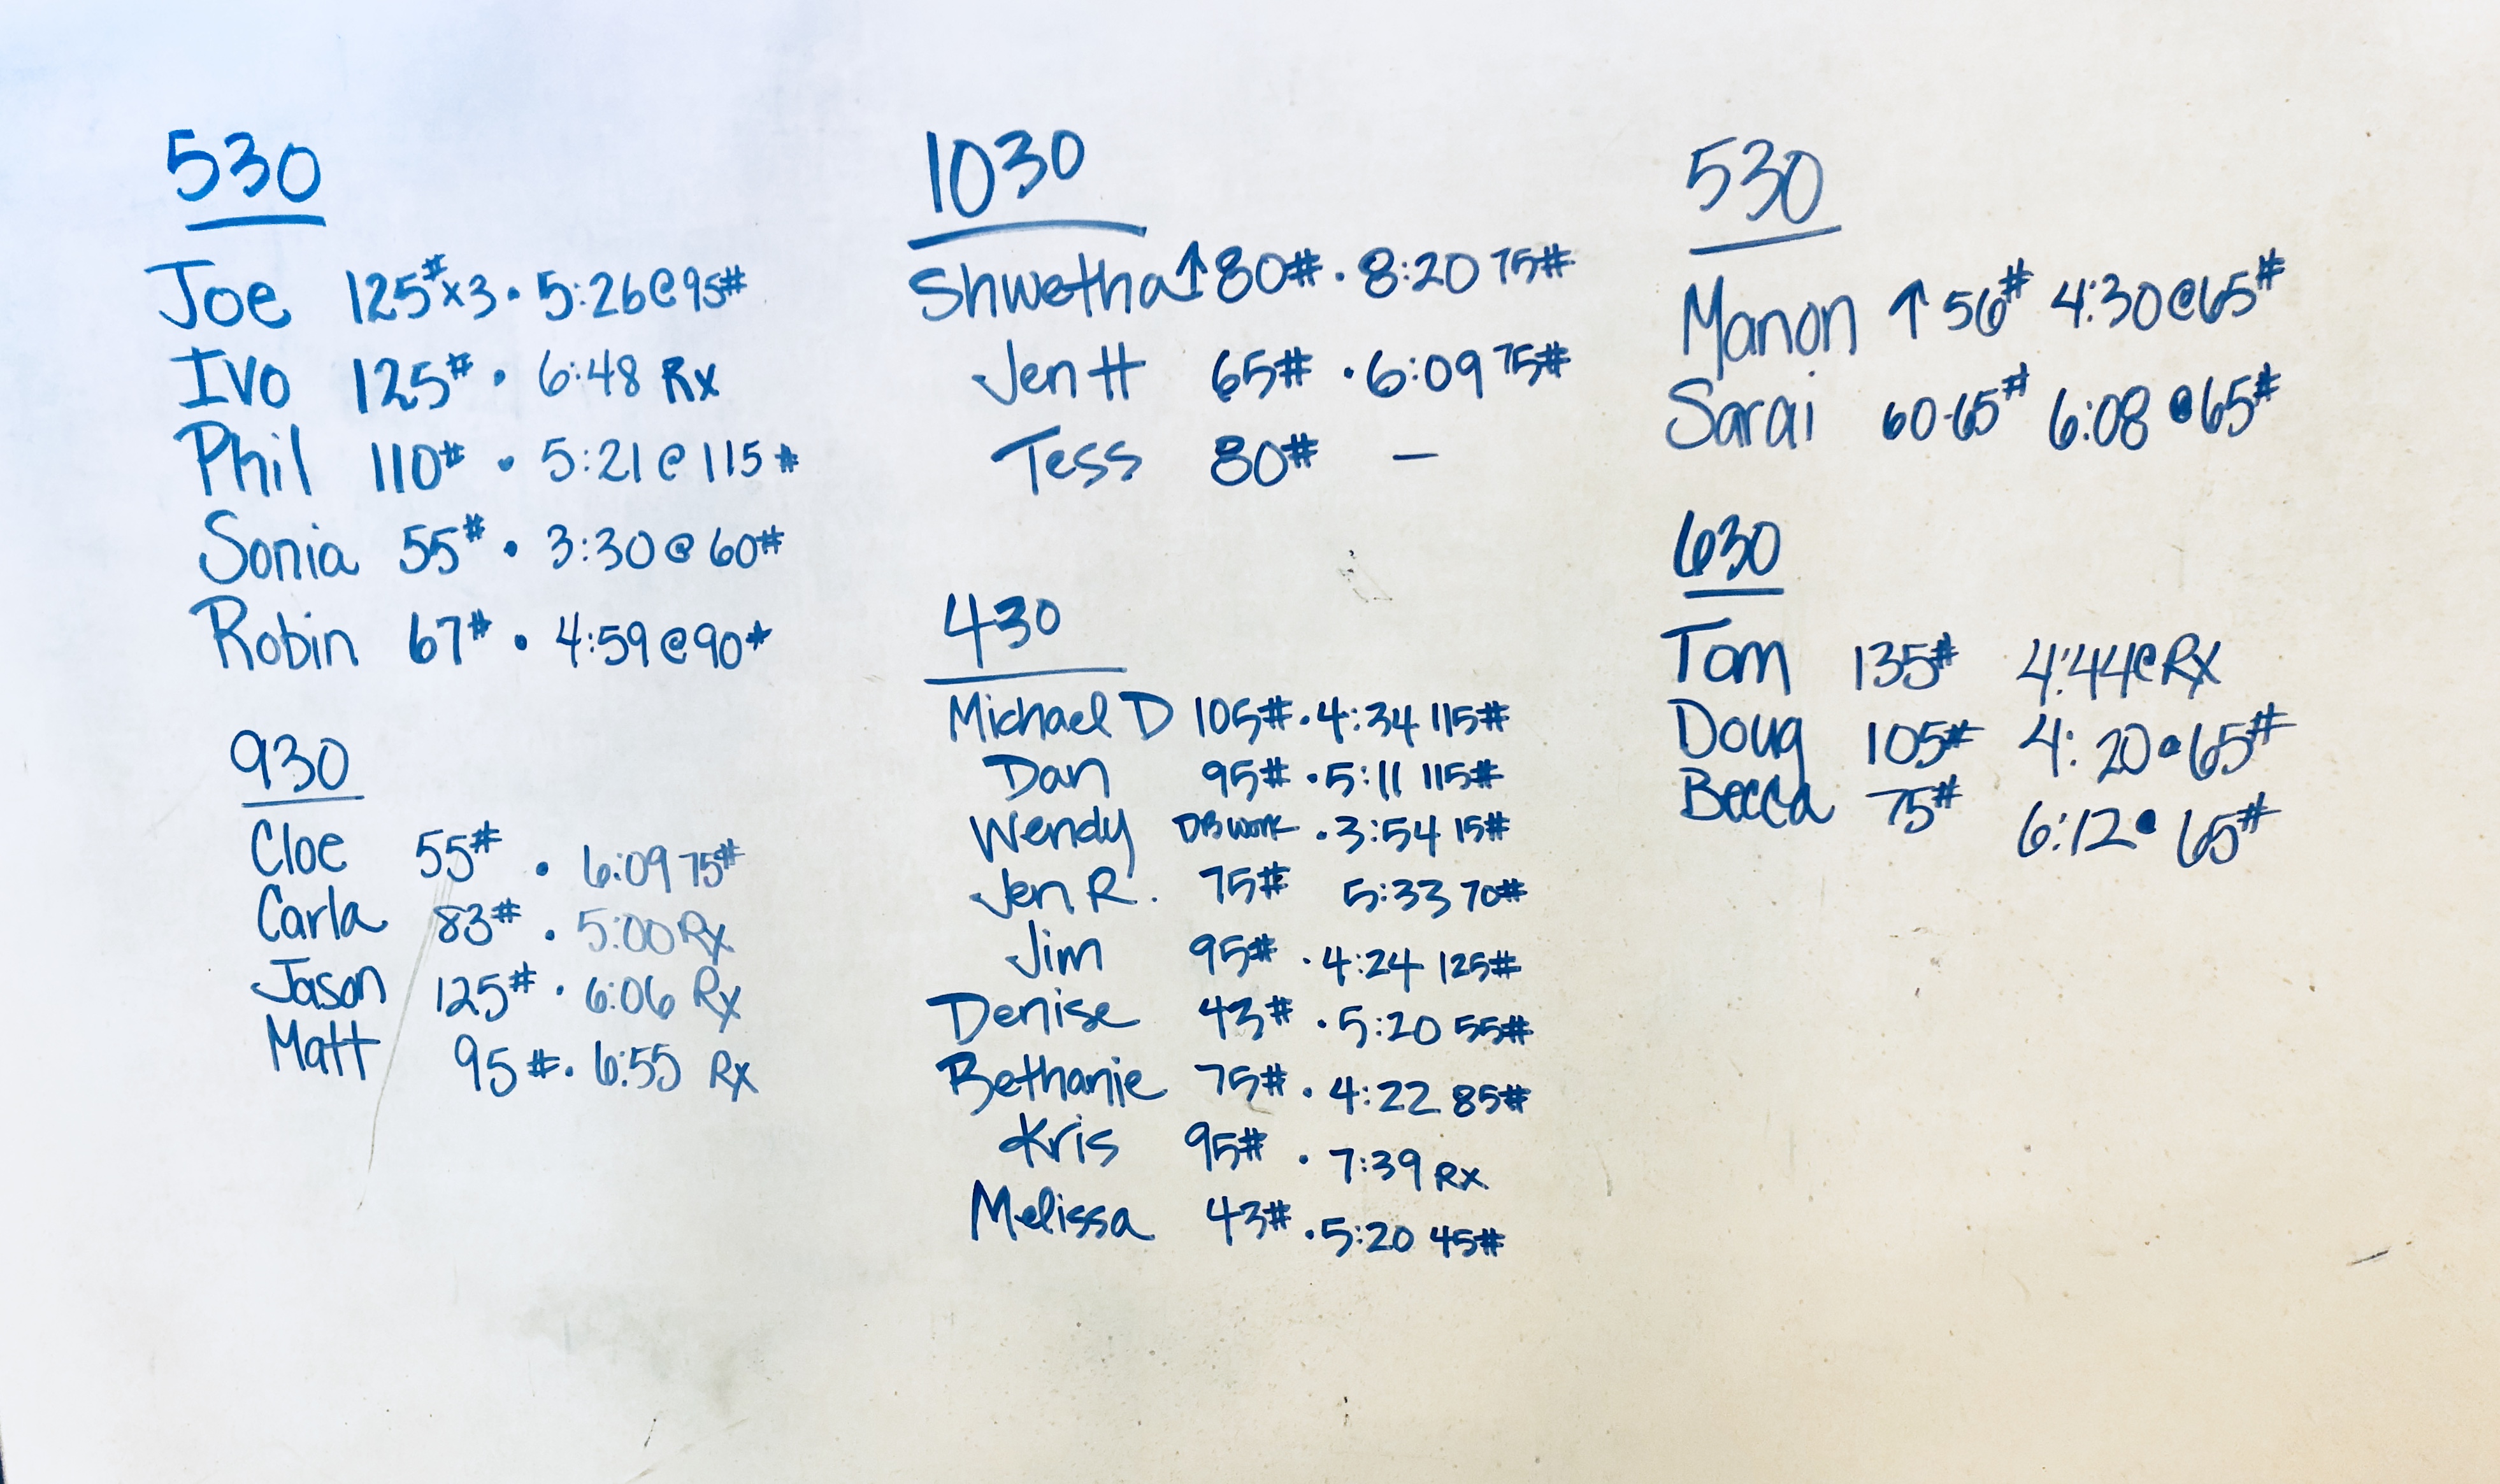 530
Joe 125#x3 • 5:26@95#
Ivo 125# • 6:48 Rx
Phil 110# • 5:21@115#
Sonia 55# • 3:30@60#
Robin 67# • 4:59@90#
930
Cloe 55# • 6:09 75#
Carla 83# • 5:00 Rx
Jason 125# • 6:06 Rx
Matt 95# • 6:55 Rx
1030
Shwetha ↑80# • 8:20 75#
Jen H 65# • 6:09 75#
Tess 80# —
430
Michael D 105# • 4:34 115#
Dan 95# • 5:11 115#
Wendy DB work • 3:54 15#
Jen R. 75# 5:33 70#
Jim 95# • 4:24 125#
Denise 43# • 5:20 55#
Bethanie 75# • 4:22 85#
Kris 95# • 7:39 Rx
Melissa 43# • 5:20 45#
530
Manon ↑56# 4:30@65#
Sarai 60-65# 6:08@65#
630
Tom 135# 4:44@Rx
Doug 105# 4:20@65#
Becca 75# 6:12@65#